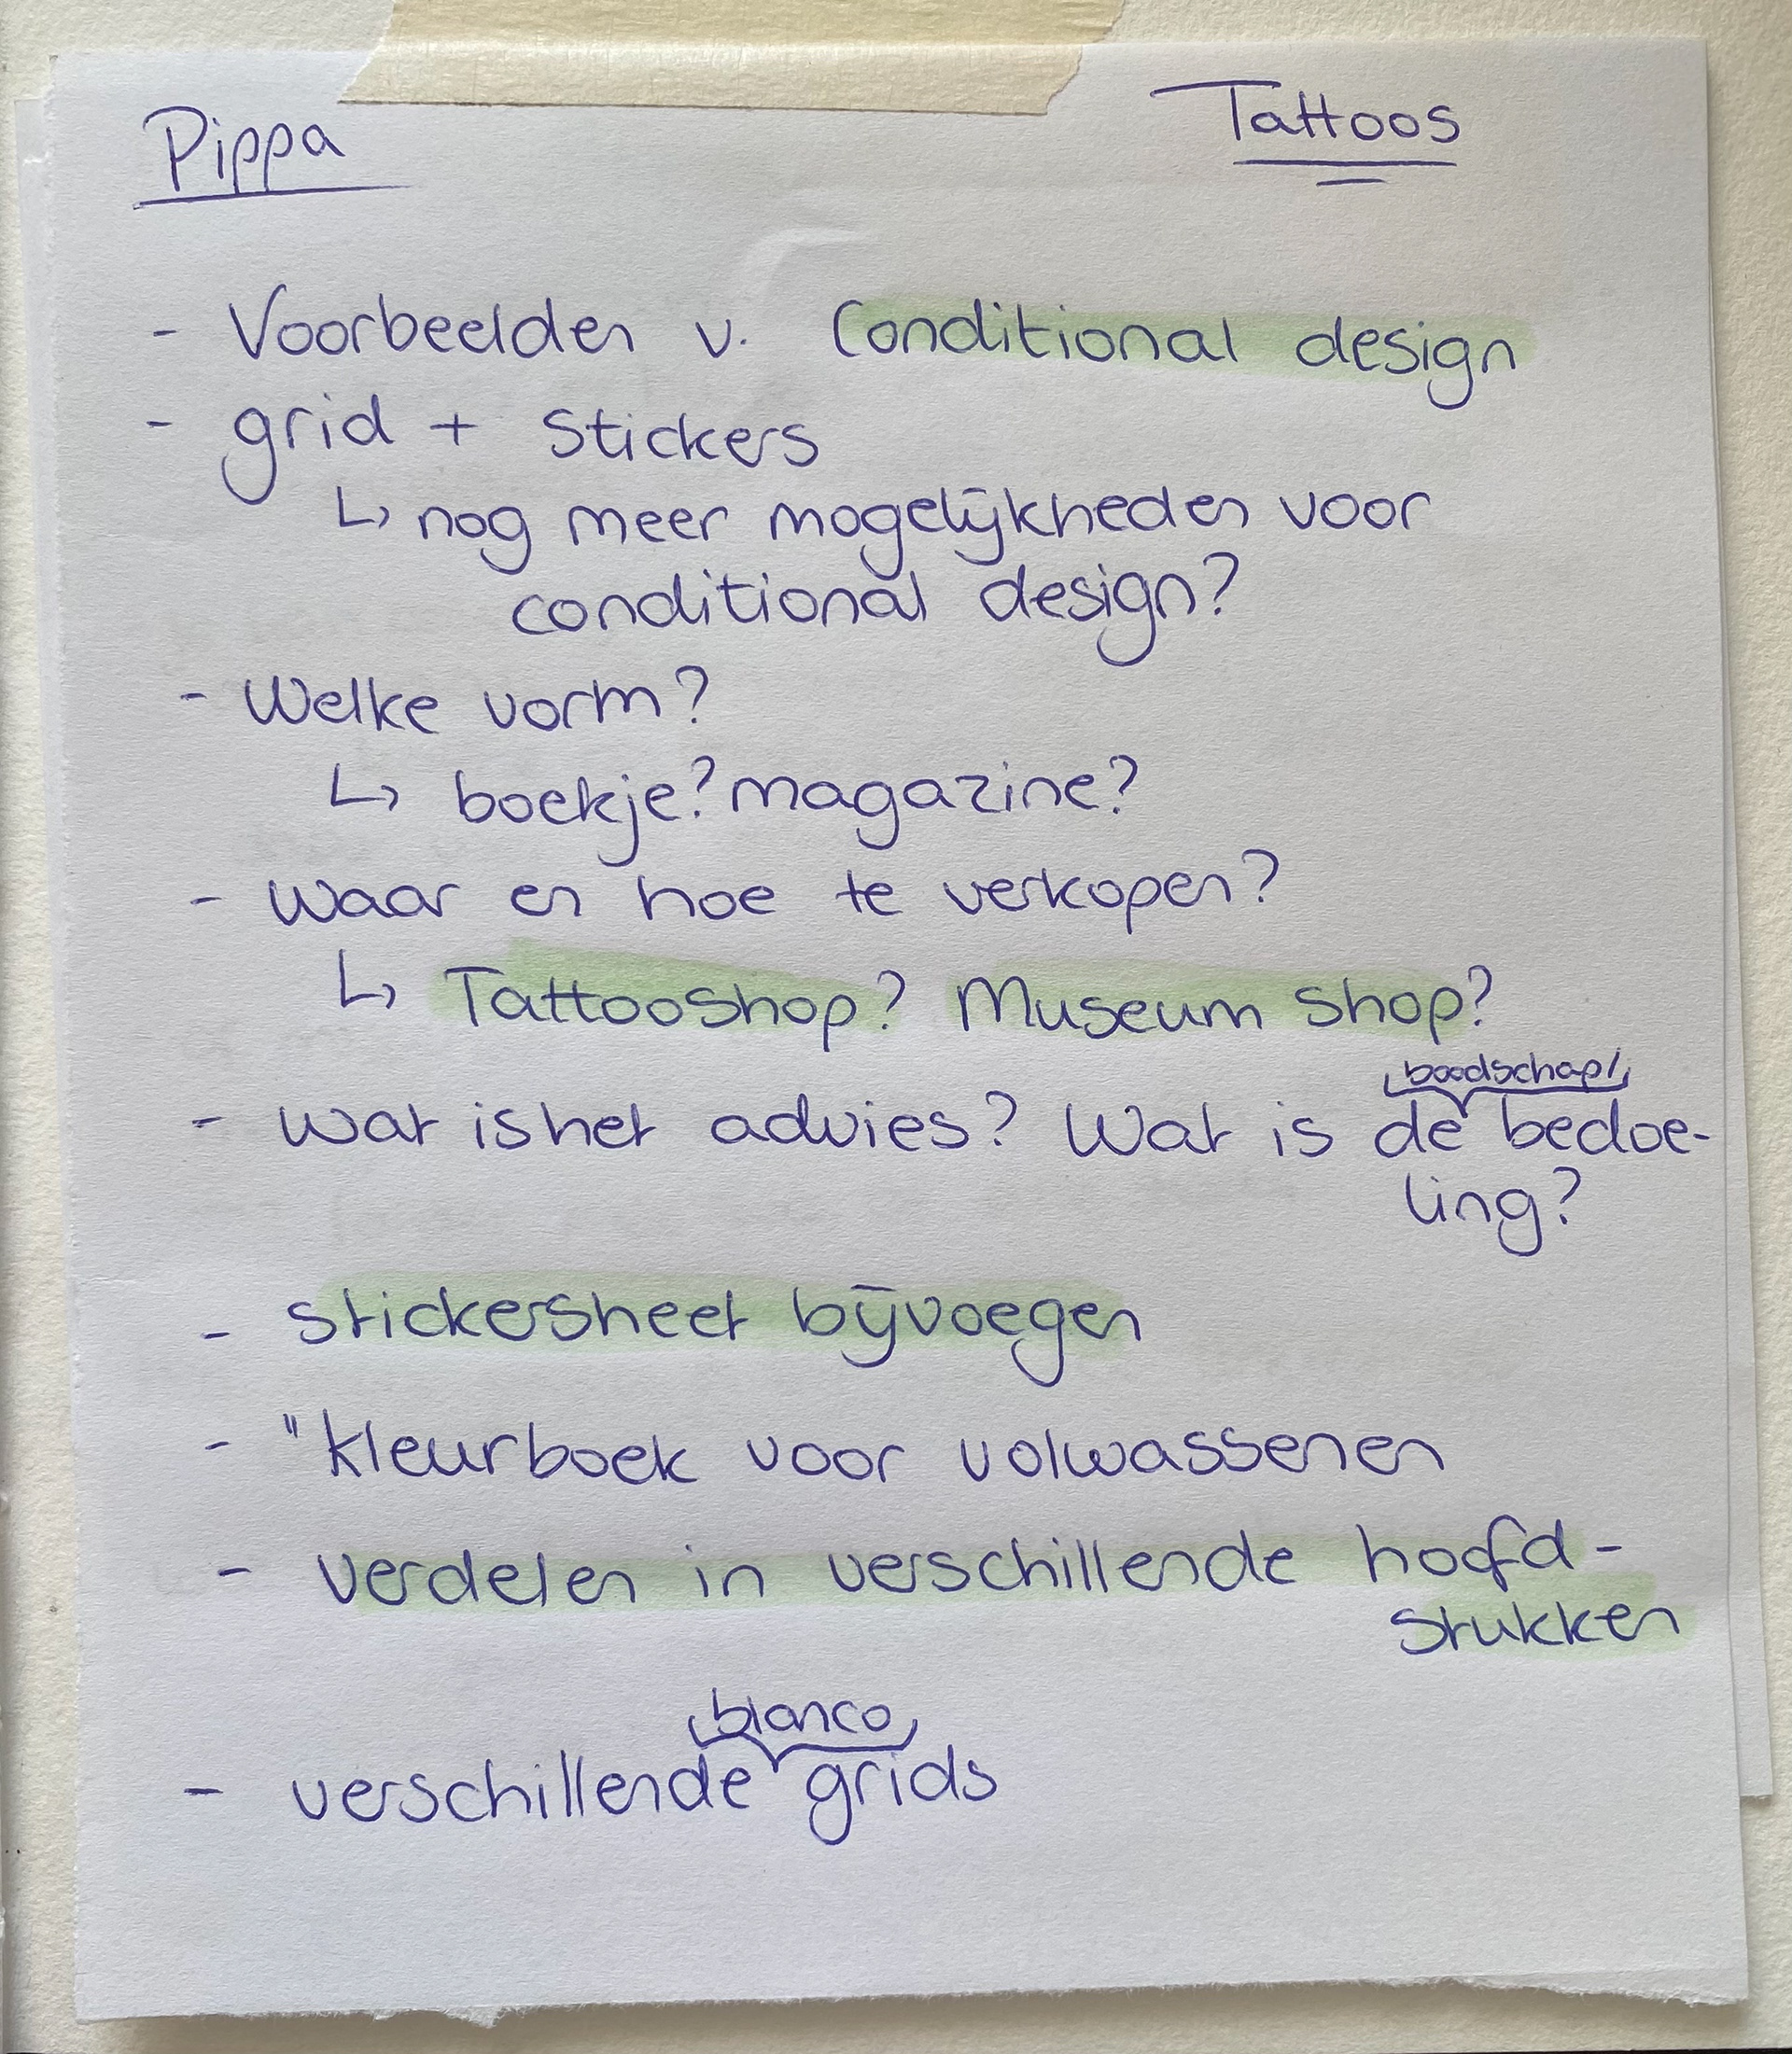 Pippa
Tattoos
- Voorbeelden v. Conditional design
- grid + stickers
↳ nog meer mogelijkheden voor
conditional design?
- Welke vorm?
↳ boekje? magazine?
- waar en hoe te verkopen?
↳ Tattooshop? Museum shop?
boodschap/
- wat is het advies? Wat is de bedoe-
ling?
- stickersheet bijvoegen
- "kleurboek voor volwassenen
- verdelen in verschillende hoofd-
stukken
blanco
- verschillende grids